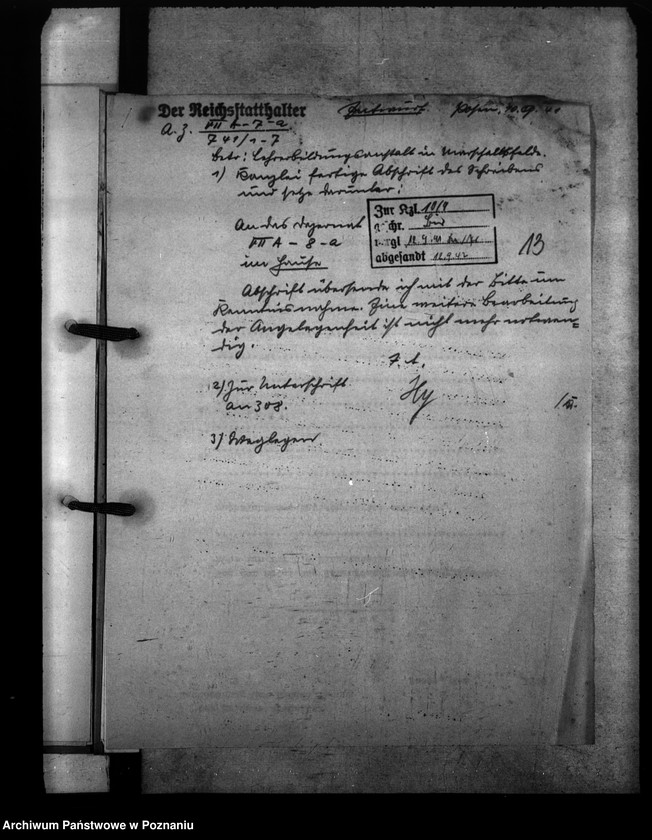 Der Reichsstatthalter
Entwurf. Posen, 10.9.41
A.Z. VII A-7-a
741/1-7
Betr.: Lehrerbildungsanstalt in Marschallfelde.
1) Kanzlei fertige Abschrift des Schreibens
und setze darunter:
An das Dezernat
VII A - 8 - a
im Hause
Zur Kzl. 10/9
gschr.
vergl 12.9.41
abgesandt 12.9.42
13
Abschrift übersende ich mit der Bitte um
Kenntnisnahme. Eine weitere Bearbeitung
der Angelegenheit ist nicht mehr notwen=
dig.
I.A.
2) Zur Unterschrift
an 308.
Hy
3) Weglegen.
Archiwum Państwowe w Poznaniu